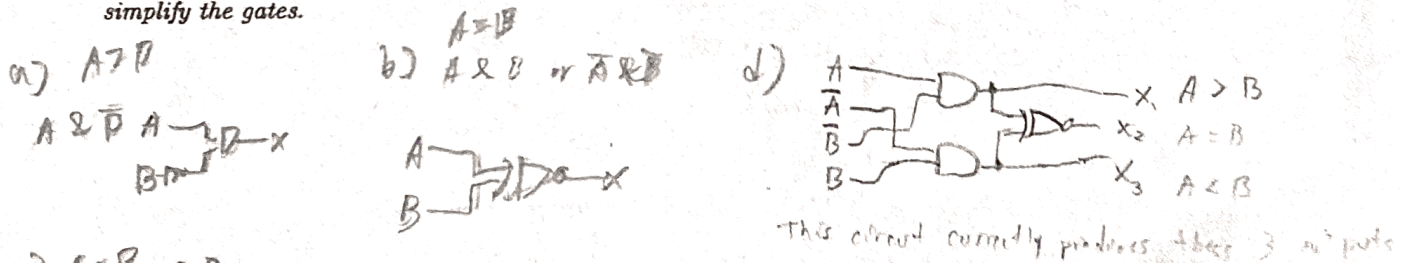 simplify the gates.
a) A > B
A & B̅ A
B
X
b) A = B
A & B or A̅ & B̅
A
B
X
d) A
A̅
B̅
B
X₁ A > B
X₂ A = B
X₃ A < B
This circuit currently produces these 3 outputs